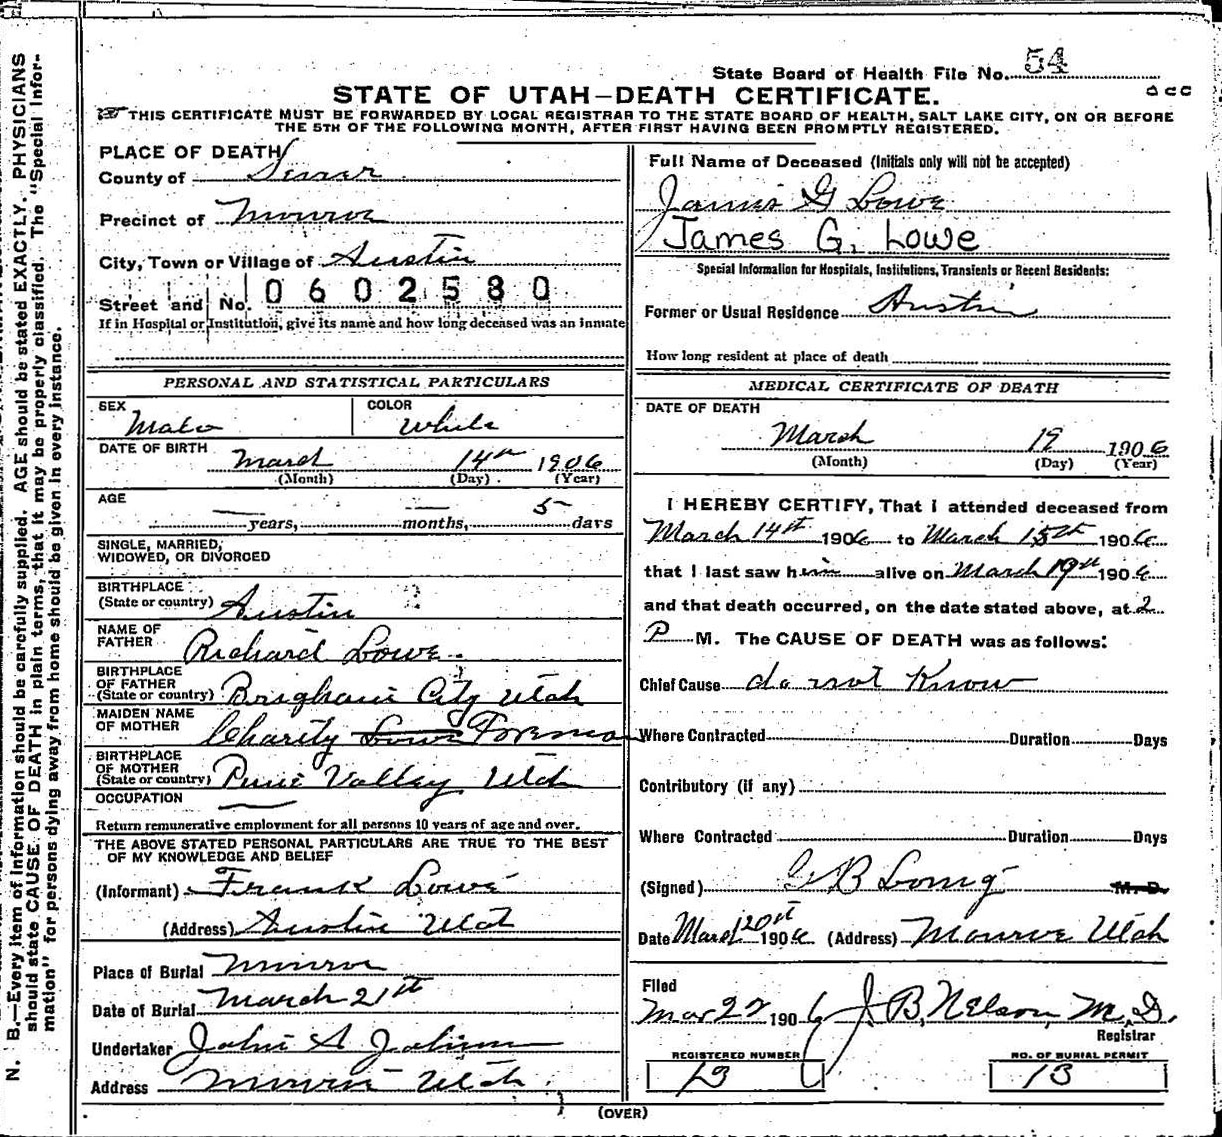 State Board of Health File No. 54
STATE OF UTAH—DEATH CERTIFICATE.
THIS CERTIFICATE MUST BE FORWARDED BY LOCAL REGISTRAR TO THE STATE BOARD OF HEALTH, SALT LAKE CITY, ON OR BEFORE
THE 5TH OF THE FOLLOWING MONTH, AFTER FIRST HAVING BEEN PROMPTLY REGISTERED.
N. B.—Every item of information should be carefully supplied. AGE should be stated EXACTLY. PHYSICIANS
should state CAUSE OF DEATH in plain terms, that it may be properly classified. The "Special Infor-
mation" for persons dying away from home should be given in every instance.
PLACE OF DEATH
County of Sevier
Precinct of Monroe
City, Town or Village of Austin
Street and No. 0602580
If in Hospital or Institution, give its name and how long deceased was an inmate
PERSONAL AND STATISTICAL PARTICULARS
SEX Male COLOR White
DATE OF BIRTH March 14th 1906
(Month) (Day) (Year)
AGE — years, — months, 5 days
SINGLE, MARRIED,
WIDOWED, OR DIVORCED
BIRTHPLACE
(State or country) Austin
NAME OF
FATHER Richard Lowe
BIRTHPLACE
OF FATHER
(State or country) Brigham City Utah
MAIDEN NAME
OF MOTHER Charity Lowe Foreman
BIRTHPLACE
OF MOTHER
(State or country) Pine Valley Utah
OCCUPATION —
Return remunerative employment for all persons 10 years of age and over.
THE ABOVE STATED PERSONAL PARTICULARS ARE TRUE TO THE BEST
OF MY KNOWLEDGE AND BELIEF
(Informant) Frank Lowe
(Address) Austin Utah
Place of Burial Monroe
Date of Burial March 21st
Undertaker John A
Address Monroe Utah
Full Name of Deceased (Initials only will not be accepted)
James G Lowe
James G. Lowe
Special Information for Hospitals, Institutions, Transients or Recent Residents:
Former or Usual Residence Austin
How long resident at place of death
MEDICAL CERTIFICATE OF DEATH
DATE OF DEATH
March 19 1906
(Month) (Day) (Year)
I HEREBY CERTIFY, That I attended deceased from
March 14th 1906 to March 15th 1906
that I last saw him alive on March 19th 1906
and that death occurred, on the date stated above, at 2
P M. The CAUSE OF DEATH was as follows:
Chief Cause do not Know
Where Contracted Duration Days
Contributory (if any)
Where Contracted Duration Days
(Signed) M. D.
Date March 20st 1906 (Address) Monroe Utah
Filed
Mar 22 1906 J. B. Nelson, M. D.
Registrar
REGISTERED NUMBER NO. OF BURIAL PERMIT
13 13
(OVER)